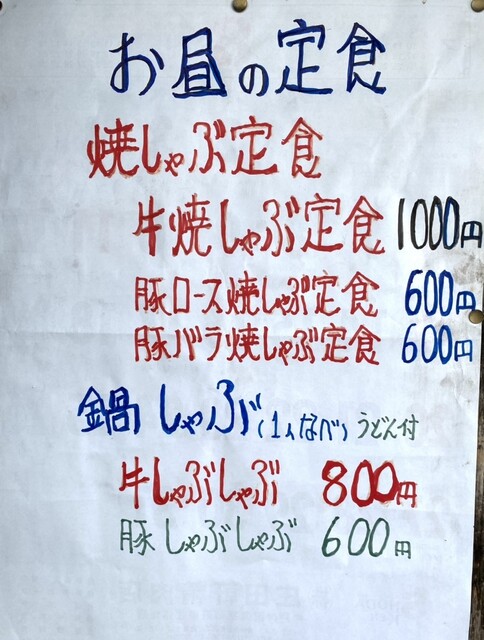 お昼の定食
焼しゃぶ定食
牛焼しゃぶ定食 1000円
豚ロース焼しゃぶ定食 600円
豚バラ焼しゃぶ定食 600円
鍋しゃぶ(1人なべ) うどん付
牛しゃぶしゃぶ 800円
豚しゃぶしゃぶ 600円